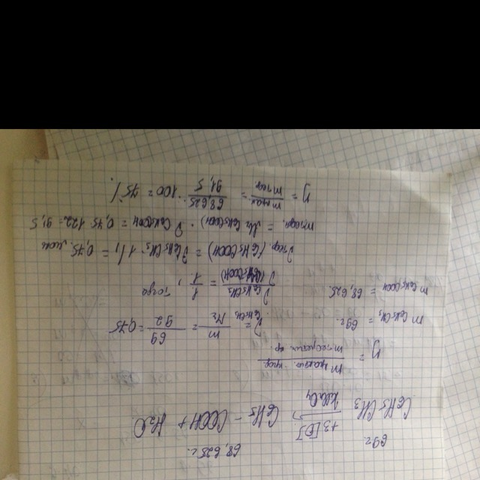 69г 68,625г
C6H5CH3 +3[O] KMnO4 → C6H5 - COOH + H2O
η = m практ
m C6H5CH3 = 69г. ν C6H5CH3 = m / Mr = 69 / 92 = 0,75
m C6H5COOH = 68,625 ν C6H5CH3 / ν(C6H5COOH) = 1 / 1, тогда
ν теор (C6H5COOH) = ν C6H5CH3 · 1/1 = 0,75 моль
m теор. = Mr C6H5COOH · ν C6H5COOH = 0,75 · 122 = 91,5
η = m прак / m теор = 68,625 / 91,5 · 100 = 75 %.